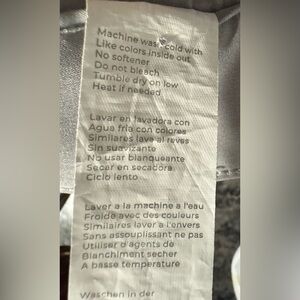 Machine wash cold with
Like colors inside out
No softener
Do not bleach
Tumble dry on low
Heat if needed
Lavar en lavadora con
Agua fria con colores
Similares lave al reves
Sin suavizante
No usar blanqueante
Secar en secadora
Ciclo lento
Laver a la machine a l'eau
Froide avec des couleurs
Similaires laver a l'envers
Sans assouplissant ne pas
Utiliser d'agents de
Blanchiment secher
A basse temperature
Waschen in der